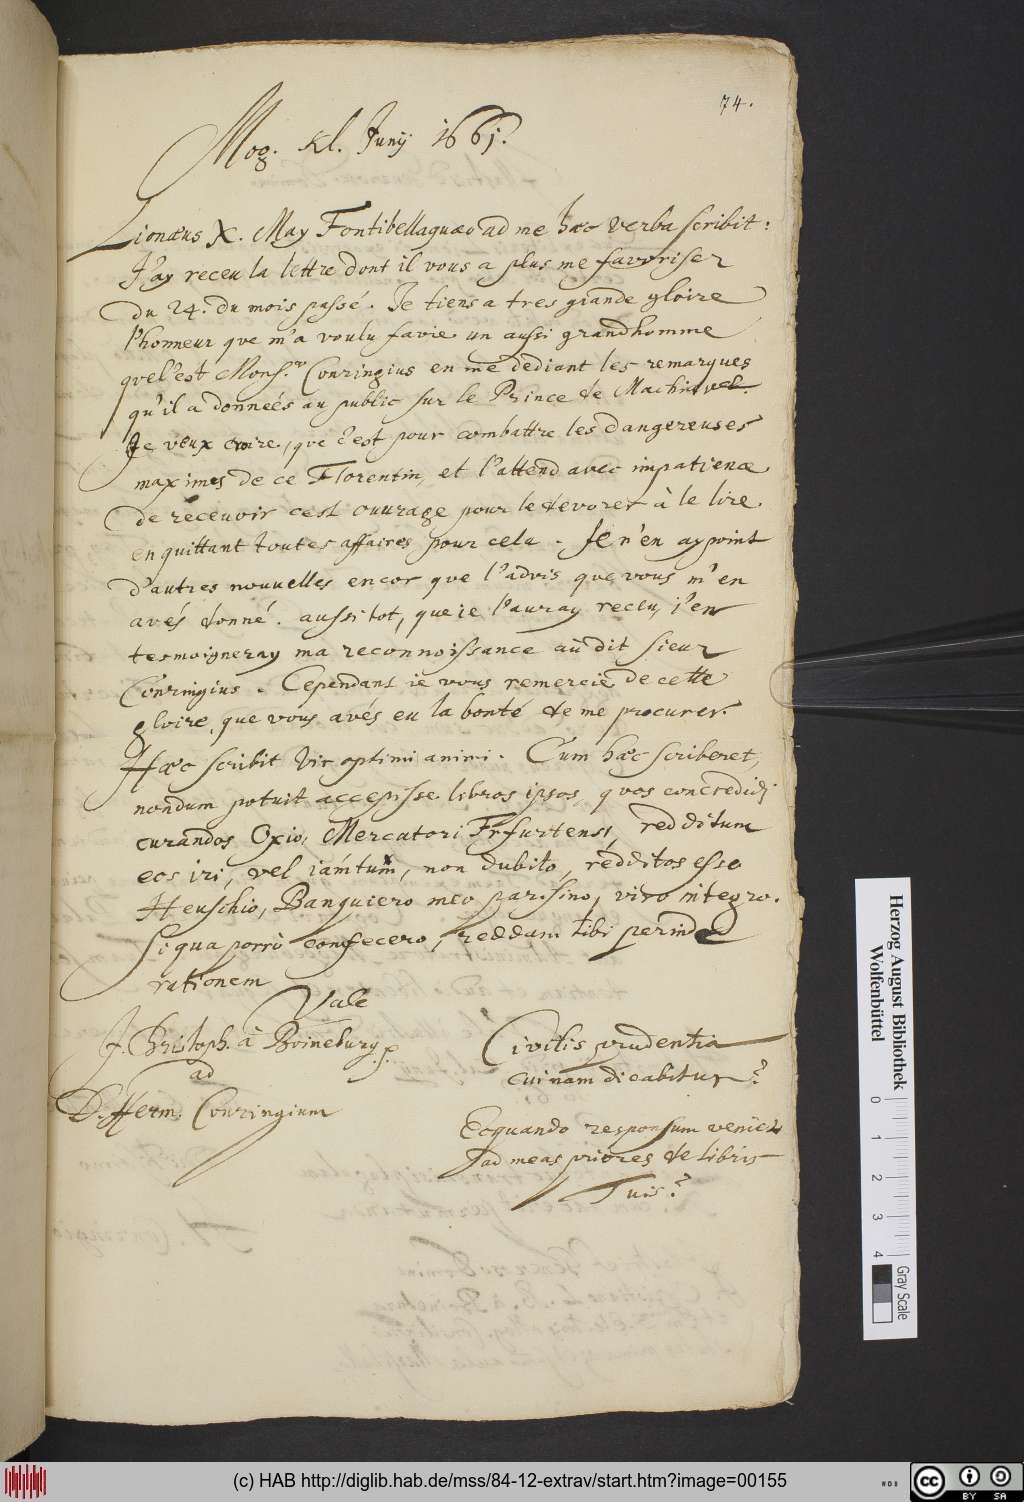 74.
Mog. Kl. Junij 1661.
Lionæus X. May Fontibellaquæo ad me hæc verba scribit:
J'ay receu la lettre dont il vous a plus me favoriser
du 24. du mois passé. Je tiens a tres giande gloire
l'honneur que m'a voulu favie un aussi grandhomme
quel'est Mons.r Conringius en me dediant les remarques
qu'il a donneés au public sur le Prince de Machiavel.
Je veux croire, que c'est pour combattre les dangereuses
maximes de ce Florentin, et l'attend avec impatience
de recevoir cest ouurage pour le devorer à le lire
en quittant toutes affaires pour cela. Je n'en ay point
d'autres nouuelles encor que l'advis que vous m'en
avés donné. aussi tot, que ie l'auray receu, j'en
tesmoigneray ma reconnoissance au dit sieur
Conringius. Cependant ie vous remercie de cette
gloire, que vous avés eu la bonté de me procurer.
Hæc scribit Vir optimi animi. Cum hæc scriberet,
nondum potuit accepisse libros ipsos, quos concredidi
curandos Oxio, Mercatori Erfurtensi, redditum
eos iri, vel iamtum, non dubito, redditos esse
Heuschio, Banquiero meo parisino, viro integro.
Si qua porrò confecero, reddam tibi perinde
rationem
Vale
J. Christoph. à Boineburg. p.
ad
D. Herm. Conringium
Civilis prudentia
cuinam dicabitur?
Ecquando responsum veniet
ad meas priores de libris
Tuis?
Herzog August Bibliothek
Wolfenbüttel
0 1 2 3 4
Gray Scale
(c) HAB http://diglib.hab.de/mss/84-12-extrav/start.htm?image=00155
cc BY SA